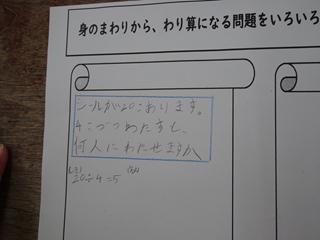 身のまわりから、わり算になる問題をいろいろ
シールが20こあります。
4こづつわたすと、
何人にわたせますか
(しき)
20÷4=5